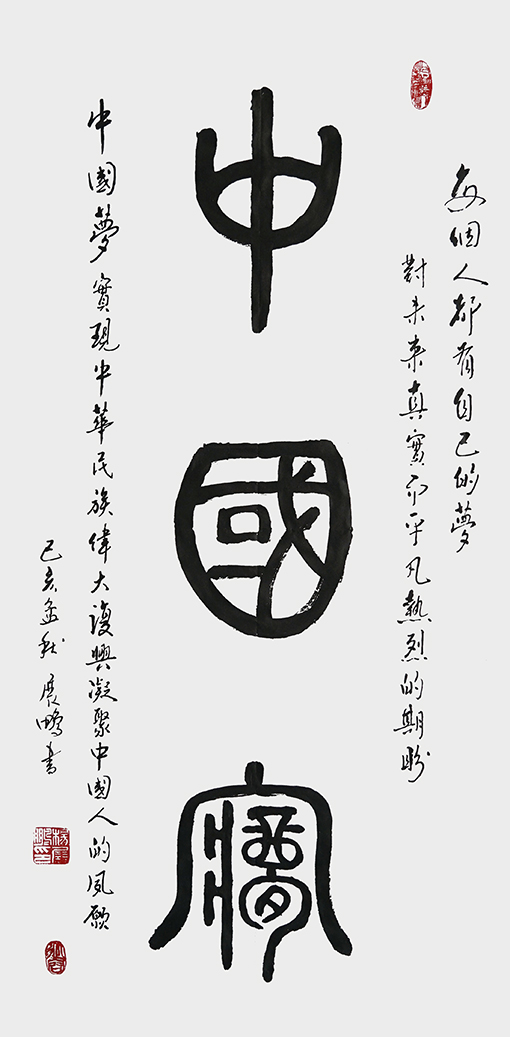 每個人都有自己的夢
對未來真實而平凡熱烈的期盼
中國夢
中國夢實現中華民族偉大復興凝聚中國人的夙願
己亥秋 展鵬書
楊展鵬印